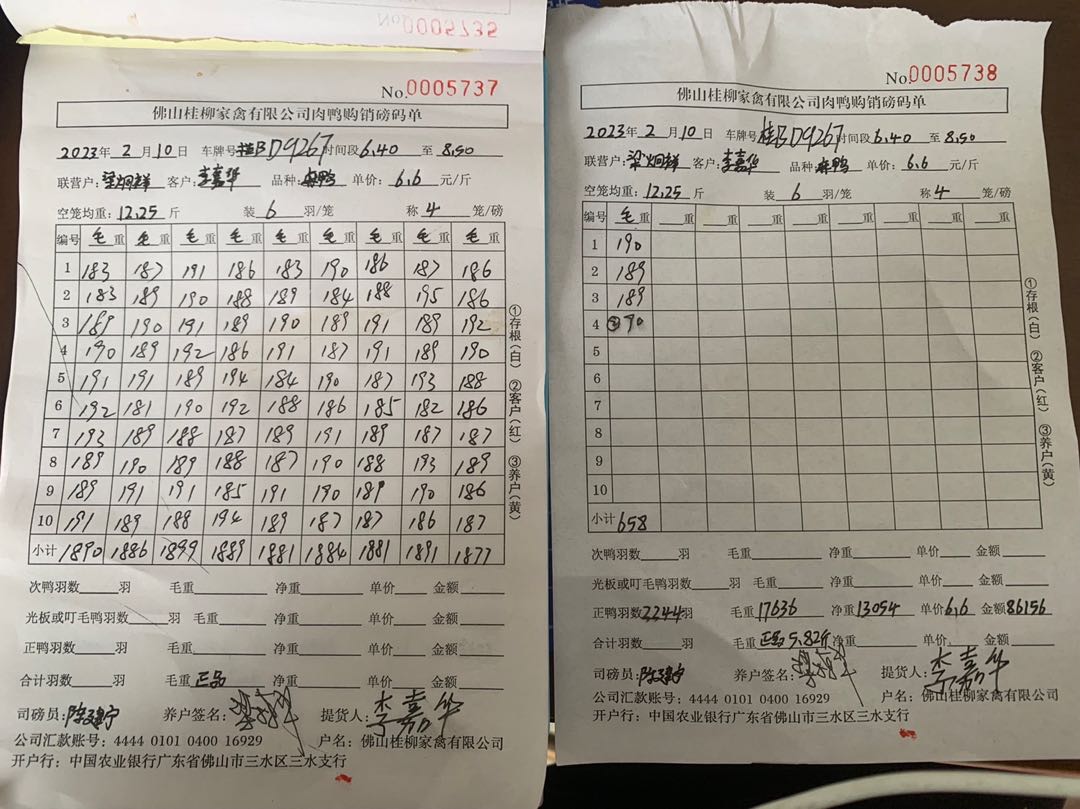 No 0005735
No.0005737
佛山桂柳家禽有限公司肉鸭购销磅码单
2023年 2 月 10 日 车牌号 桂BD9267 时间段 6.40 至 8.50
联营户: 客户: 李嘉华 品种: 麻鸭 单价: 6.6 元/斤
空笼均重: 12.25 斤 装 6 羽/笼 称 4 笼/磅
编号 毛重 毛重 毛重 毛重 毛重 毛重 毛重 毛重 毛重
1 183 187 191 186 183 190 186 187 186
2 183 189 190 188 189 184 188 195 186
3 189 190 191 189 190 189 191 189 192
4 190 189 192 186 191 187 191 189 190
5 191 191 189 194 184 190 187 193 188
6 192 181 190 192 188 186 185 182 186
7 193 189 188 187 189 191 189 187 187
8 189 190 189 188 187 190 188 193 189
9 189 191 191 185 191 190 189 190 186
10 191 189 188 194 189 187 187 186 187
小计 1890 1886 1899 1889 1881 1884 1881 1891 1877
次鸭羽数 羽 毛重 净重 单价 金额
光板或叮毛鸭羽数 羽 毛重 净重 单价 金额
正鸭羽数 羽 毛重 净重 单价 金额
合计羽数 羽 毛重 正品 净重 单价 金额
司磅员: 养户签名: 提货人: 李嘉华
公司汇款账号: 4444 0101 0400 16929 户名: 佛山桂柳家禽有限公司
开户行: 中国农业银行广东省佛山市三水区三水支行
①存根(白) ②客户(红) ③养户(黄)
No.0005738
佛山桂柳家禽有限公司肉鸭购销磅码单
2023年 2 月 10 日 车牌号 桂BD9267 时间段 6.40 至 8.50
联营户: 客户: 李嘉华 品种: 麻鸭 单价: 6.6 元/斤
空笼均重: 12.25 斤 装 6 羽/笼 称 4 笼/磅
编号 毛重 重 重 重 重 重 重 重 重
1 190
2 189
3 189
4 ② 90
5
6
7
8
9
10
小计 658
次鸭羽数 羽 毛重 净重 单价 金额
光板或叮毛鸭羽数 羽 毛重 净重 单价 金额
正鸭羽数 2244 羽 毛重 17636 净重 13054 单价 6.6 金额 86156
合计羽数 羽 毛重 正品 5.82斤 净重 单价 金额
司磅员: 养户签名: 提货人: 李嘉华
公司汇款账号: 4444 0101 0400 16929 户名: 佛山桂柳家禽有限公司
开户行: 中国农业银行广东省佛山市三水区三水支行
①存根(白) ②客户(红) ③养户(黄)